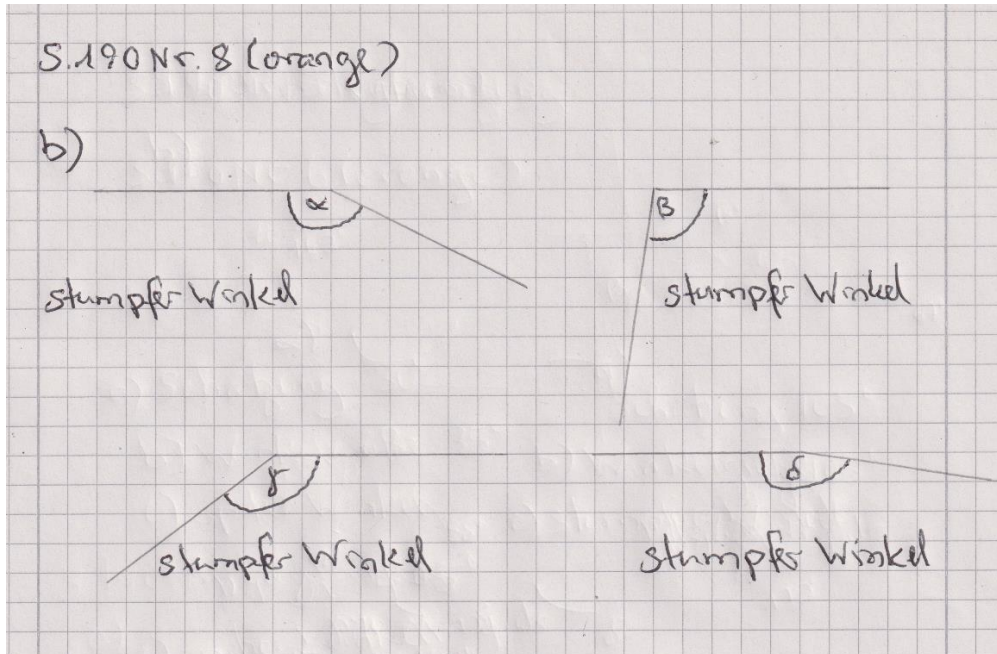 S.190 Nr. 8 (orange)
b)
α
β
stumpfer Winkel
stumpfer Winkel
γ
δ
stumpfer Winkel
stumpfer Winkel